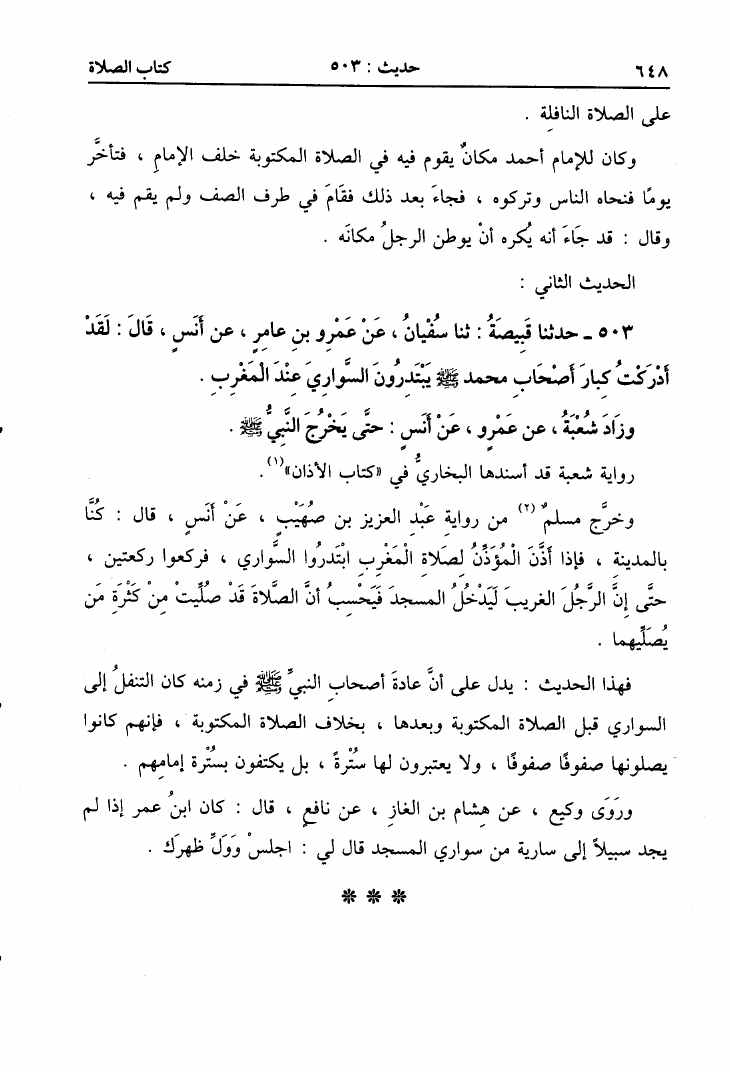 ٦٤٨ حديث : ٥٠٣ كتاب الصلاة
على الصلاة النافلة .
وكان للإمام أحمد مكانٌ يقوم فيه في الصلاة المكتوبة خلف الإمامِ ، فتأخَّر
يومًا فنحاه الناس وتركوه ، فجاءَ بعد ذلك فقَامَ في طرف الصف ولم يقم فيه ،
وقال : قد جَاءَ أنه يُكره أنْ يوطن الرجلُ مكانَه .
الحديث الثاني :
٥٠٣ ـ حدثنا قَبِيصَةُ : ثنا سفْيانُ ، عَنْ عَمْرِو بنِ عامِرٍ ، عن أنَسٍ ، قَالَ : لَقَدْ
أدْرَكْتُ كِبارَ أصْحَابِ محمد ﷺ يَبْتَدِرُونَ السَّوارِيَ عنْدَ الْمَغْرِبِ .
وزَادَ شُعْبَةُ ، عن عَمْرٍو ، عَنْ أنَسٍ : حتَّى يَخْرُجَ النَّبيُّ ﷺ .
رواية شعبة قد أسندها البخاريُّ في «كتاب الأذان»(١) .
وخرَّج مسلمٌ(٢) من روايةِ عبْدِ العزيز بن صُهَيْبٍ ، عَنْ أنَسٍ ، قال : كُنَّا
بالمدينة ، فإذا أذَّنَ الْمُؤَذِّنُ لصلاةِ الْمَغْرِبِ ابْتدَرُوا السَّواري ، فركعوا ركعتين ،
حتَّى إنَّ الرَّجُلَ الغريبَ لَيَدْخُلُ المسجدَ فَيَحْسِبُ أنَّ الصَّلاةَ قَدْ صلِّيتْ مِنْ كَثْرةِ مَن
يُصلِّيهما .
فهذا الحديث : يدل على أنَّ عادةَ أصحابِ النبيِّ ﷺ في زمنه كان التنفلُ إلى
السواري قبل الصلاة المكتوبة وبعدها ، بخلاف الصلاة المكتوبة ، فإنهم كانوا
يصلونها صفوفًا صفوفًا ، ولا يعتبرون لها سُتْرةً ، بل يكتفون بسُتْرة إمامِهم .
ورَوَى وكيع ، عن هشام بن الغاز ، عن نافعٍ ، قال : كان ابنُ عمر إذا لم
يجد سبيلاً إلى سارية من سواري المسجد قال لي : اجلسْ وَوَلِّ ظهركَ .
* * *